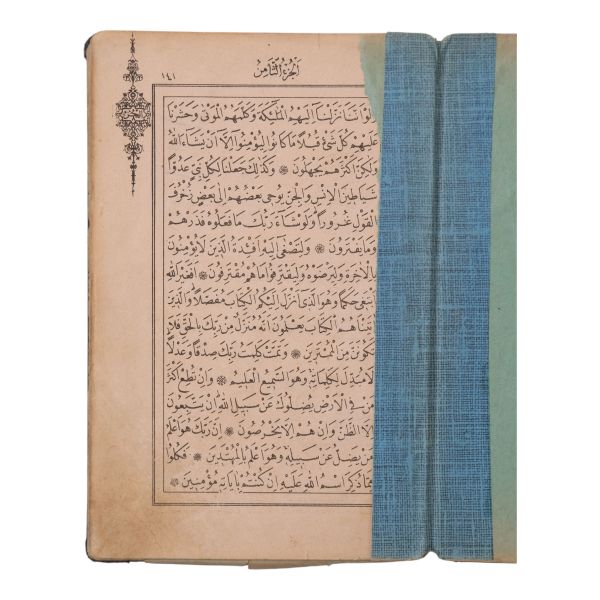 الجزء الثامن
١٤١
الحزب
وَلَوْ اَنَّنَا نَزَّلْنَٓا اِلَيْهِمُ الْمَلٰٓئِكَةَ وَكَلَّمَهُمُ الْمَوْتٰى وَحَشَرْنَا
عَلَيْهِمْ كُلَّ شَيْءٍ قُبُلًا مَا كَانُوا لِيُؤْمِنُٓوا اِلَّٓا اَنْ يَشَٓاءَ اللّٰهُ
وَلٰكِنَّ اَكْثَرَهُمْ يَجْهَلُونَ ❋ وَكَذٰلِكَ جَعَلْنَا لِكُلِّ نَبِيٍّ عَدُوًّا
شَيَاطِينَ الْاِنْسِ وَالْجِنِّ يُوحِي بَعْضُهُمْ اِلٰى بَعْضٍ زُخْرُفَ
الْقَوْلِ غُرُورًا وَلَوْ شَٓاءَ رَبُّكَ مَا فَعَلُوهُ فَذَرْهُمْ
وَمَا يَفْتَرُونَ ❋ وَلِتَصْغٰٓى اِلَيْهِ اَفْـِٔدَةُ الَّذِينَ لَا يُؤْمِنُونَ
بِالْاٰخِرَةِ وَلِيَرْضَوْهُ وَلِيَقْتَرِفُوا مَا هُمْ مُقْتَرِفُونَ ❋ اَفَغَيْرَ اللّٰهِ
اَبْتَغِي حَكَمًا وَهُوَ الَّذِٓي اَنْزَلَ اِلَيْكُمُ الْكِتَابَ مُفَصَّلًا وَالَّذِينَ
اٰتَيْنَاهُمُ الْكِتَابَ يَعْلَمُونَ اَنَّهُ مُنَزَّلٌ مِنْ رَبِّكَ بِالْحَقِّ فَلَا
تَكُونَنَّ مِنَ الْمُمْتَرِينَ ❋ وَتَمَّتْ كَلِمَتُ رَبِّكَ صِدْقًا وَعَدْلًا
لَا مُبَدِّلَ لِكَلِمَاتِهِ وَهُوَ السَّمِيعُ الْعَلِيمُ ❋ وَاِنْ تُطِعْ اَكْثَرَ
مَنْ فِي الْاَرْضِ يُضِلُّوكَ عَنْ سَبِيلِ اللّٰهِ اِنْ يَتَّبِعُونَ
اِلَّا الظَّنَّ وَاِنْ هُمْ اِلَّا يَخْرُصُونَ ❋ اِنَّ رَبَّكَ هُوَ اَعْلَمُ
مَنْ يَضِلُّ عَنْ سَبِيلِهِ وَهُوَ اَعْلَمُ بِالْمُهْتَدِينَ ❋ فَكُلُوا
مِمَّا ذُكِرَ اسْمُ اللّٰهِ عَلَيْهِ اِنْ كُنْتُمْ بِاٰيَاتِهِ مُؤْمِنِينَ ❋